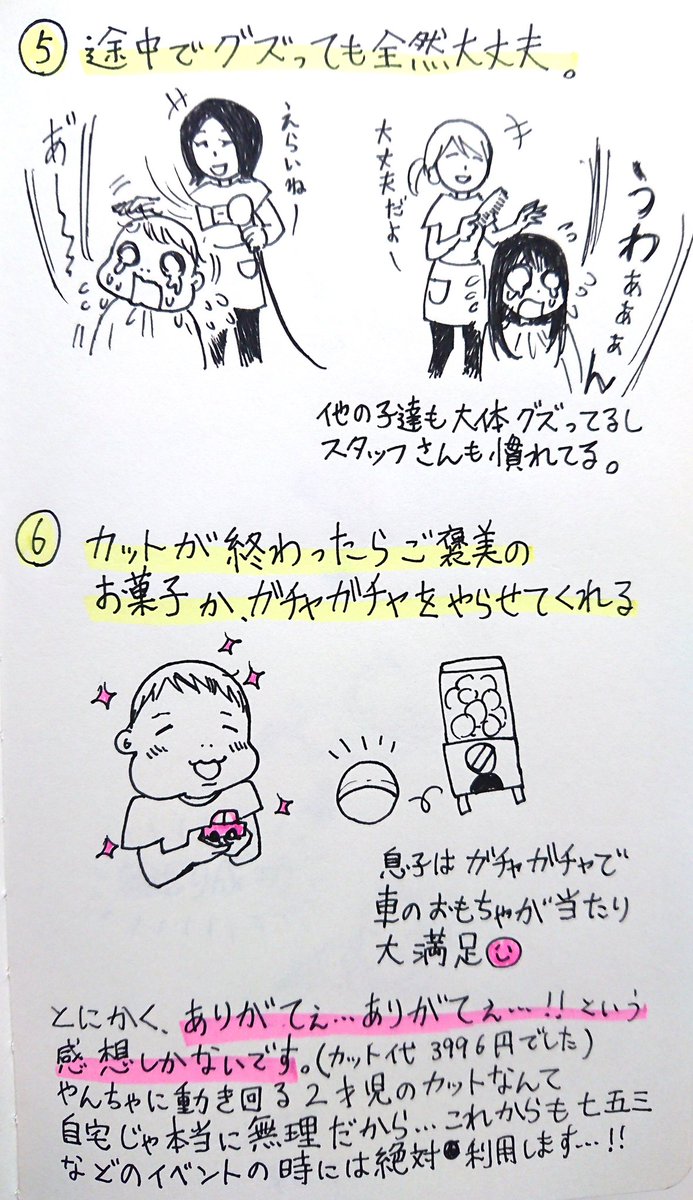 ⑤ 途中でグズっても全然大丈夫。
あ゛ーーー
えらいねー
大丈夫だよー
うわぁぁぁん
他の子達も大体グズってるし
スタッフさんも慣れてる。
⑥ カットが終わったらご褒美の
お菓子か、ガチャガチャをやらせてくれる
息子はガチャガチャで
車のおもちゃが当たり
大満足
とにかく、ありがてぇ…ありがてぇ…!!という
感想しかないです。(カット代3996円でした)
やんちゃに動き回る2才児のカットなんて
自宅じゃ本当に無理だから…これからも七五三
などのイベントの時には絶対利用します…!!